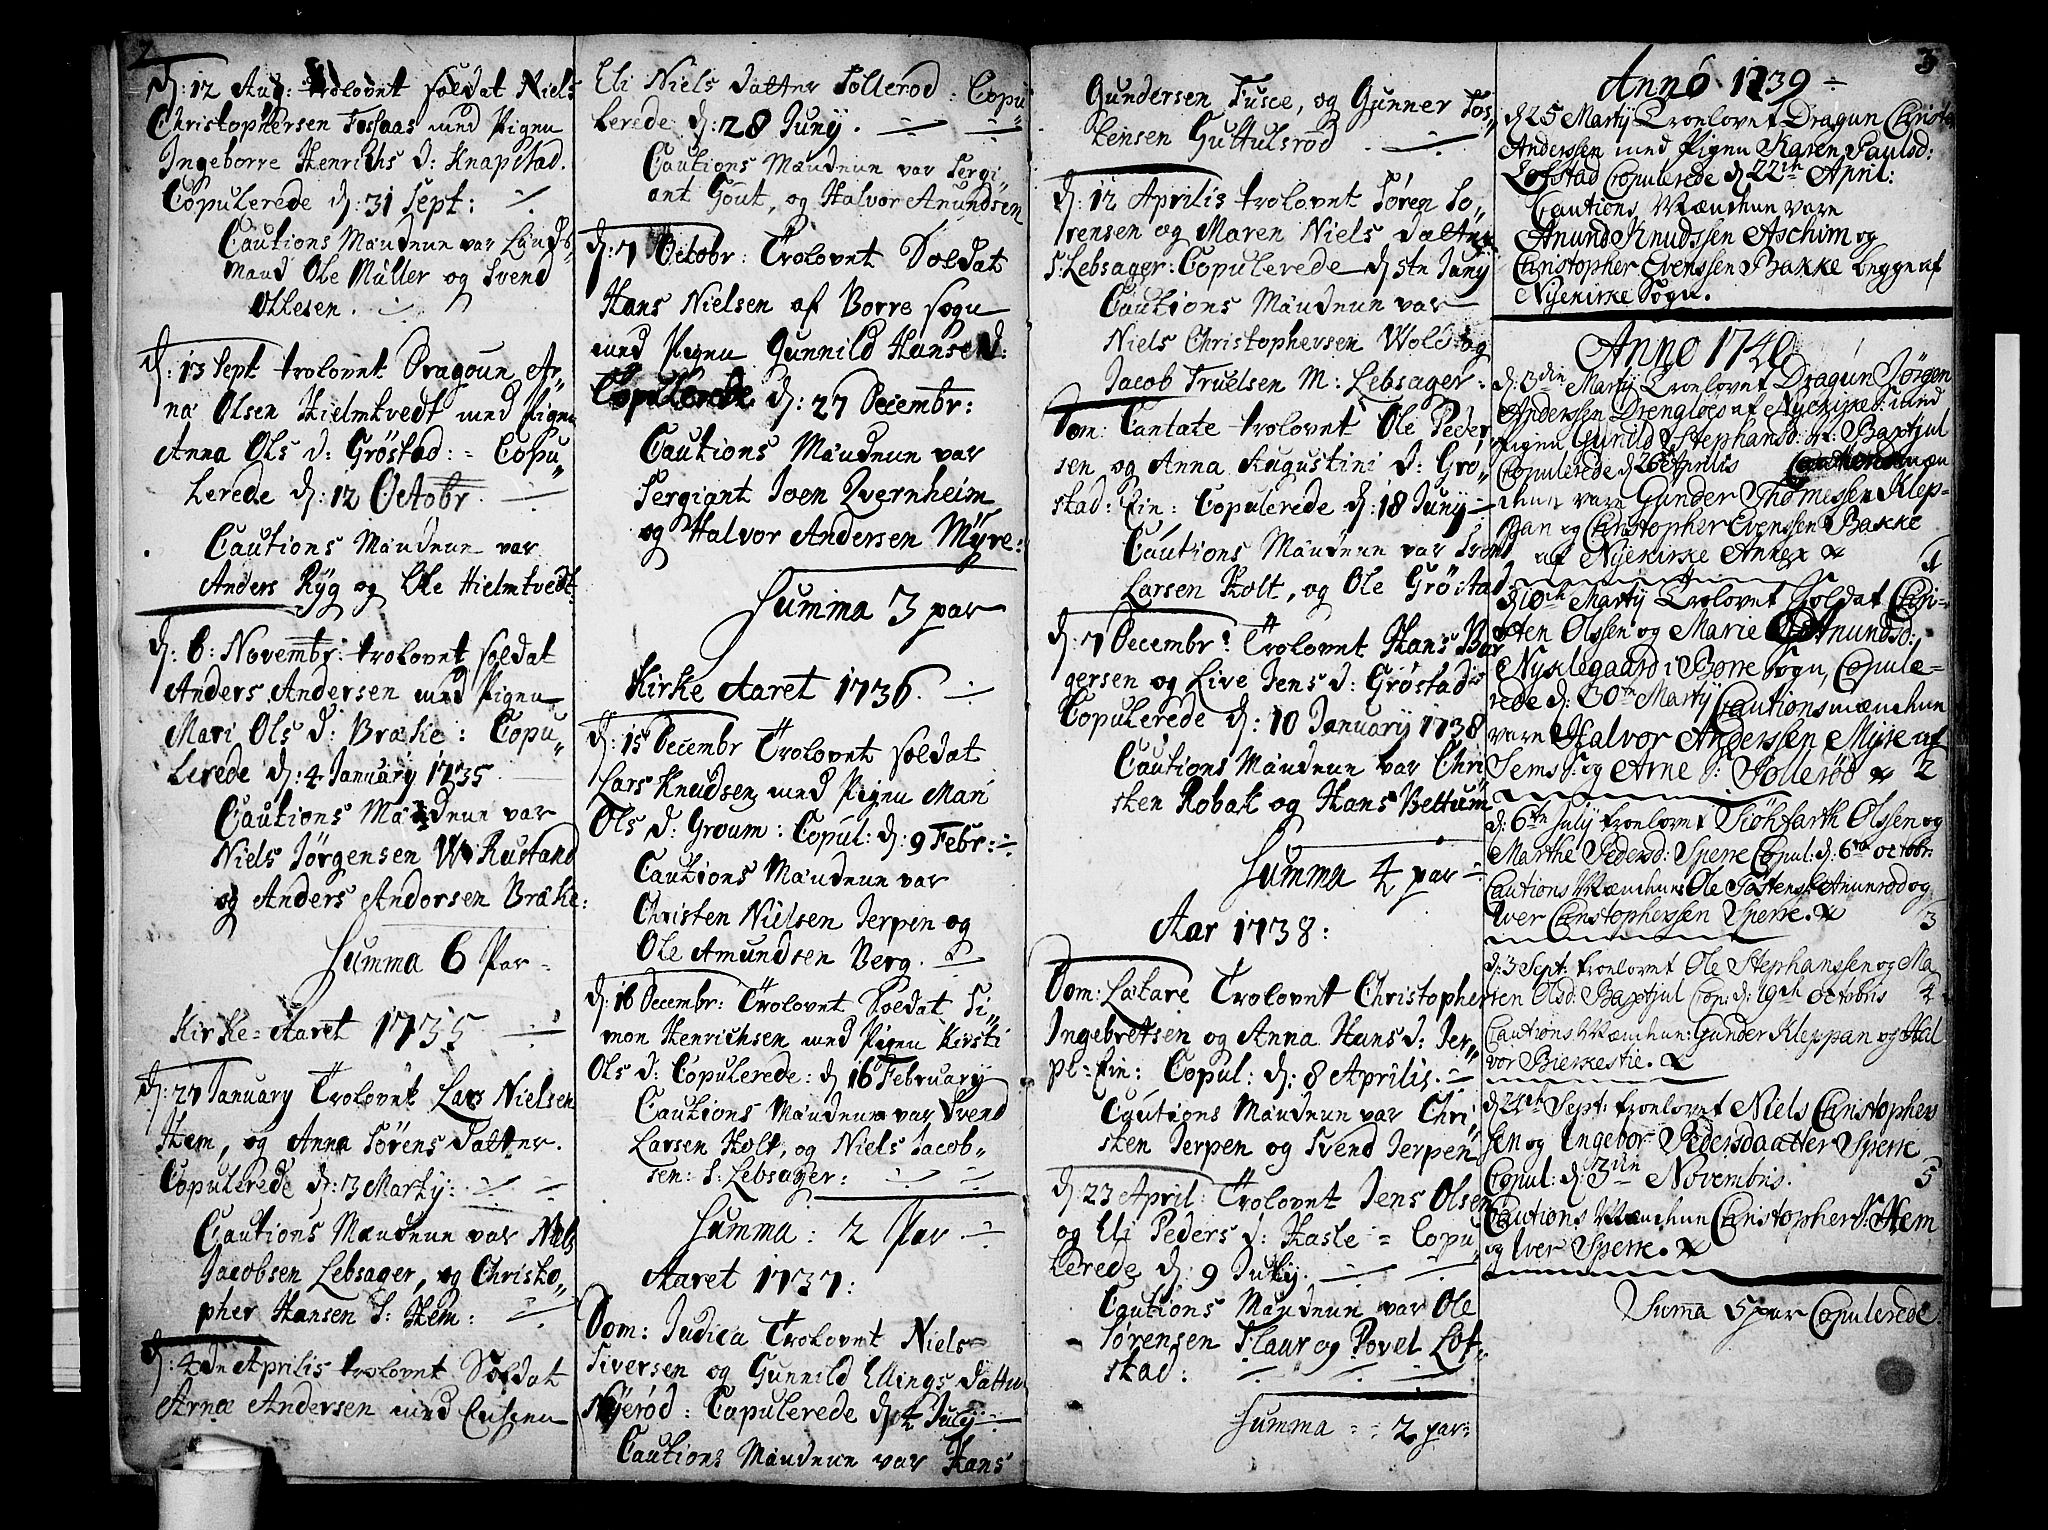 2
d: 12 Aug: trolovet soldat Niels
Christophersen Fossaas med Pigen
Ingeborre Henrichs d: Knapstad.
Copulerede d: 31 Sept:
Cautions Mændene var Lænds-
mand Ole Müller og Svend
Ollesen.
d: 13 Sept trolovet Dragoun Ar,,
na Olsen Hielmtvedt med Pigen
Anna Ols d: Gröstad: = Copu,,
lerede d: 12 Octobr.
Cautions Mændene var
Anders Ryg og Ole Hielmtvedt
d: 6: Novembr: trolovet soldat
Anders Andersen med Pigen
Mari Ols d: Bræke: Copu,,
lerede d: 4 January 1735.
Cautions Mændene var
Niels Jörgensen W: Rustand
og Anders Andersen Bræke:
Summa 6 Par
Kirke-Aaret 1735
d: 27 January Trolovet Lars Nielsen
Hem, og Anna Sörens Datter.
Copulerede d: 3 Martij:
Cautions Mændene var Niels
Jacobsen Lebsager, og Christo,,
pher Hansen S: Hem:
d: 4de Aprilis trolovet Soldat
Arne Andersen med
Eli Niels datter Sollerod: Copu,,
lerede d: 28 Juny.
Cautions Mændene var Sergi
ant Gout, og Halvor Anundsen
d: 7 Octobr: Trolovet Soldat
Hans Nielsen af Borre sogn
med Pigen Gunnild Hanse d:
Copulerede d: 27 Decembr:
Cautions Mændene var
Sergiant Joen Qvernheim
og Halvor Andersen Myre:
Summa 3 par
Kirke Aaret 1736.
d: 15 Decembr Trolovet soldat
Lars Knudsen med Pigen Mari
Ols d: Groum: Copul: d: 9 Febr:
Cautions Mændene var
Christen Nielsen Jerpen og
Ole Amundsen Berg.
d: 16 Decembr: Trolovet Soldat Si,,
mon Henrichsen med Pigen Kirsti
Ols d: Copulerede: d 16 February
Cautions Mændene var Svend
Larsen Holt, og Niels Jacob,,
sen: S: Lebsager:
Summa: 2 Par.
Aaret 1737:
Dom: Judica Trolovet Niels
Siversen og Gunnild Ellings Datter
Nyerød: Copulerede d: 4 July
Cautions Mændene var Hans
Gundersen Fusee, og Gunner Tos,,
lensen Guttulsrød
d: 12 Aprilis trolovet Søren So,,
rensen og Maren Niels datter
S: Lebsager: Copulerede d 5te Juny
Cautions Mændene var
Niels Christophersen Wold og
Jacob Truelsen M: Lebsager:
Dom: Cantate trolovet Ole Peder
sen og Anna Augustini d: Grø,,
stad: Ein: Copulerede d: 18 Juny
Cautions Mændene var Svend
Larsen Holt, og Ole Grøstad
d: 7 Decembr: Trolovet Hans Bør
gersen og Live Jens d: Grøstad
Copulerede d: 10 January 1738
Cautions Mændene var Chri
sten Robak og Hans Bettum
Summa 4 par
Aar 1738:
Dom: Lætare Trolovet Christopher
Ingebretsen og Anna Hans d: Jer,,
p: Ein: Copul: d: 8 Aprilis.
Cautions Mændene var Chri,,
sten Jerpen og Svend Jerpen
d: 23 April: Trolovet Jens Olsen
og Eli Peders d: Hasle = Copu,,
lerede d: 9 July.
Cautions Mændene var Ole
Sørensen Flaur og Povel Lof,,
stad:
Summa 2 par
3
Anno 1739
d 25 Martij Troelovet Dragun Christen
Anderssen med Pigen Karen Paulsd:
Lofstad Copulerede d 22th April:
Cautions Mændene vare
Anund Knudssen Aschim og
Christopher Evenssen Bakke begge af
Nyekirke Sogn.
Anno 1740
d: 3die Martij Troelovet Dragun Jørgen
Anderssen Drengloes af Nyekirke S: med
Pigen Gunild Stephansd: N: Baxtjul
Copulerede d 26 Aprilis Cautionsmæn
dene vare Gunder Thomessen Klep-
pan og Christopher Evenssen Bakke
af Nyekirke Annex 1
d 10th Martij Troelovet Soldat Chri-
sten Olssen og Marie Anundsd:
Nyklegaard i Borre Sogn, Copule-
rede d: 30th Martij Cautionsmændene
vare Halvor Anderssen Myre af
Sems S: og Arne S: Sollerød 2
d: 6te July troelovet Siøhfarth Olssen og
Marthe Pedersd: Sperre Copul: d: 6te octobr:
Cautions Mændene: Ole Tostens: Anunrød og
Iver Christophersen Sperre. 3
d: 3 Sept: troelovet Ole Stephanssen og Ma
ren Olsd: Baxtjul Cop: d: 19th octobris 4
Cautions Mændene: Gunder Kleppan og Hal
vor Bierkestie.
d 21th Sept: troelovet Niels Christophers
sen og Ingebor Pedersdaatter Sperre
Copul: d 3die Novembris. 5
Cautions Mændene Christopher S: Hem
og Iver Sperre.
Suma 5 par Copulerede.